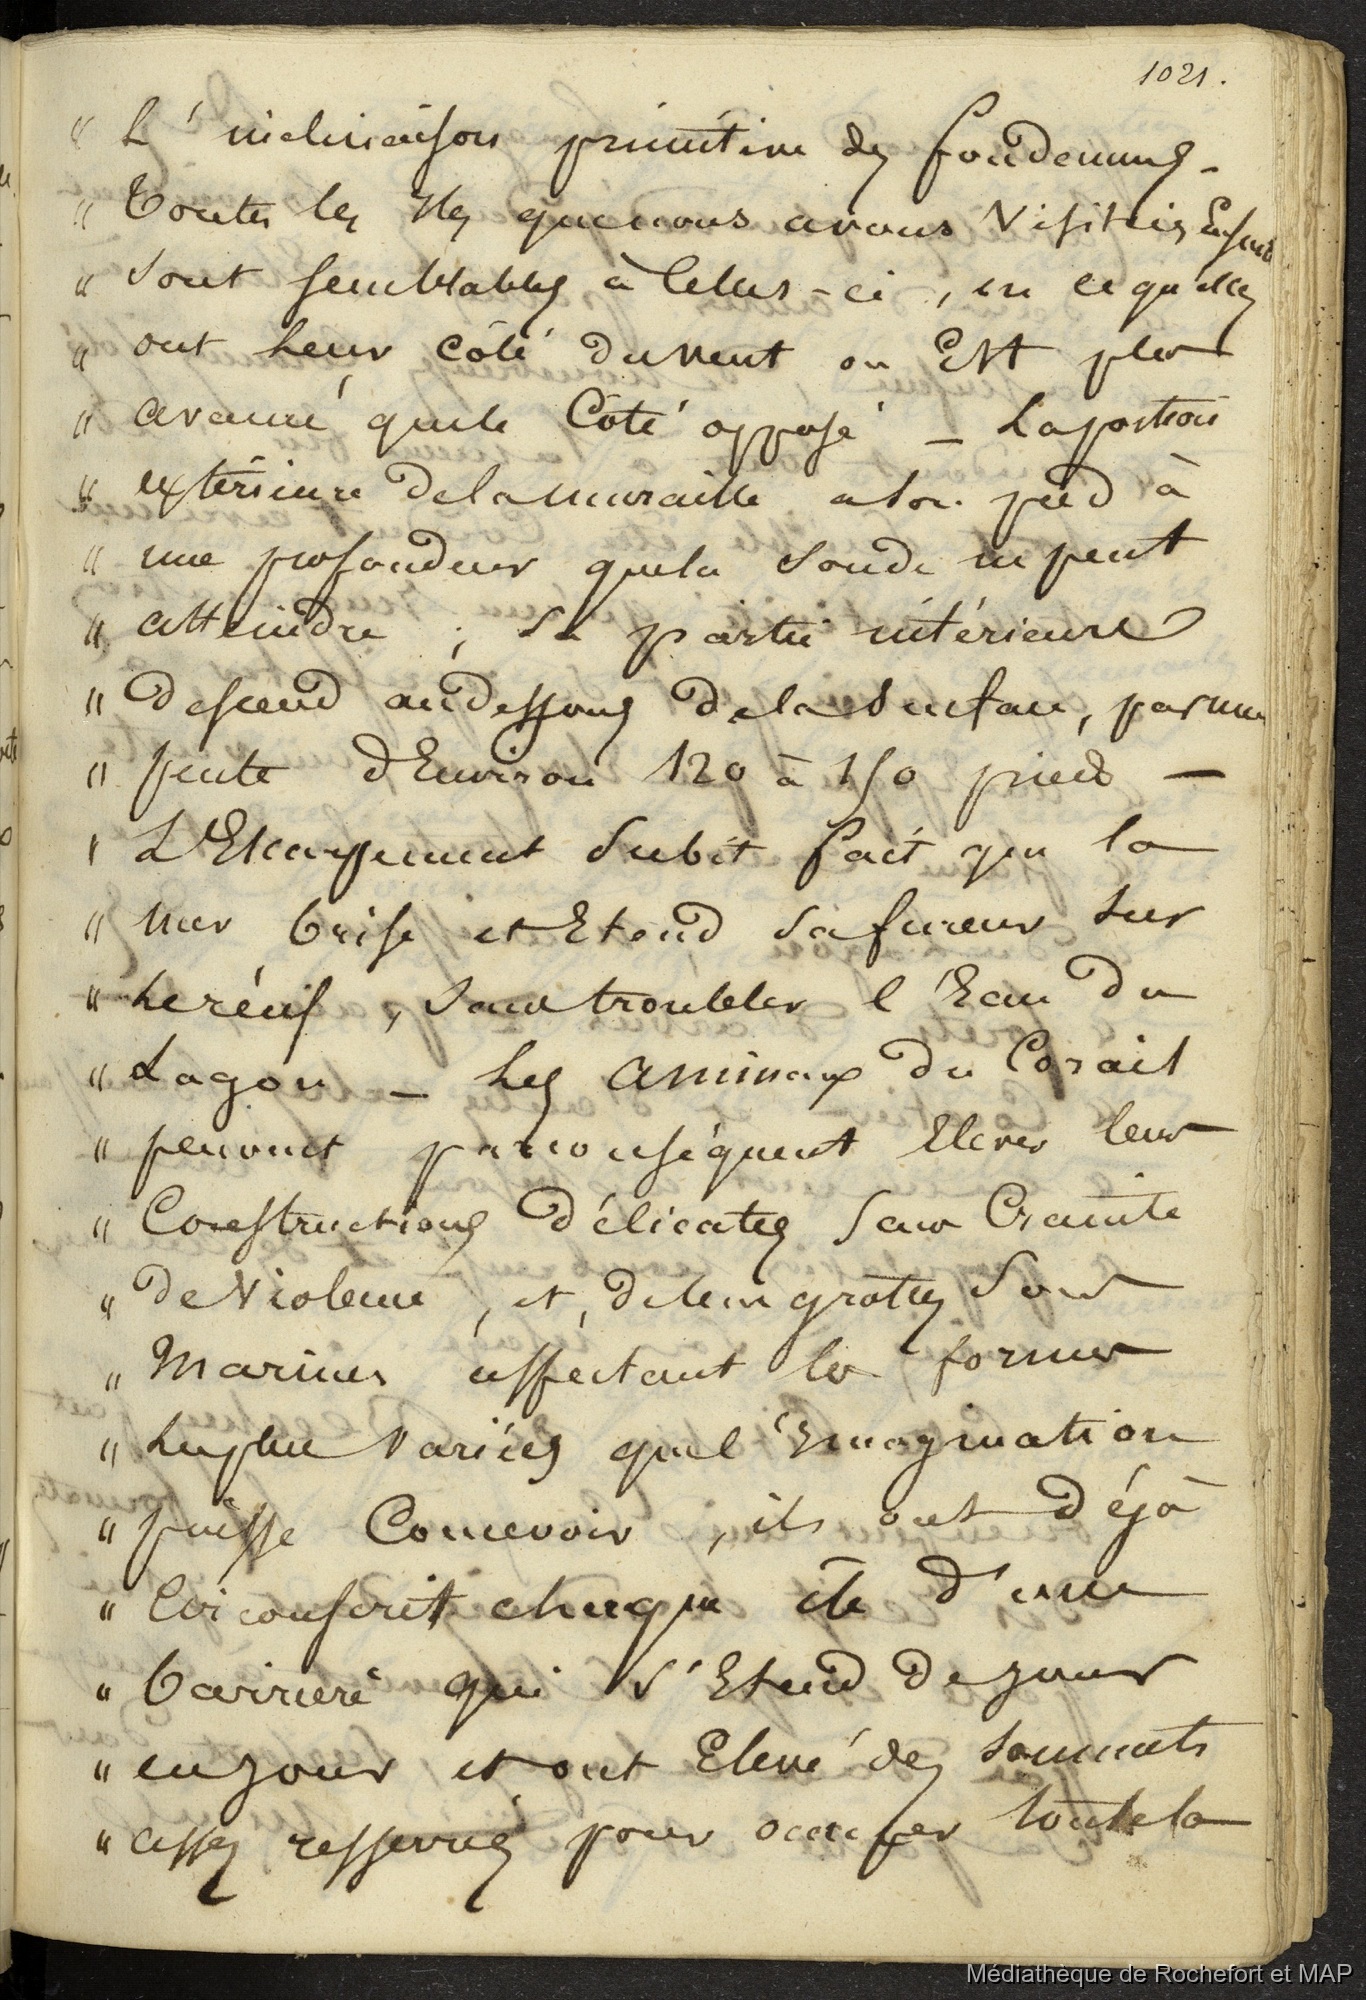 1021.
" L'inclinaison primitive des fondemens -
" Toutes les Iles que nous avons Visitées Ensuite
" sont semblables à Celles-ci, en ce qu'elles
" ont leur côté du vent ou Est plus
" avancé que le Côté opposé - La portion
" extérieure de la muraille a son pied à
" une profondeur que la sonde ne peut
" atteindre ; sa partie intérieure
" descend au dessous de la surface, par une
" pente d'Environ 120 à 150 pieds -
" L'Escarpement subit fait que la
" mer brise et Etend sa fureur sur
" le récif, sans troubler l'Eau du
" Lagon - Les Animaux du Corail
" peuvent par conséquent Elever leurs
" Constructions délicates sans Crainte
" de Violence, et, de leurs grottes Sous
" Marines affectant les formes
" les plus Variées que l'Imagination
" puisse Concevoir, ils ont déjà
" Circonscrit chaque île d'une
" barrière qui s'Etend de jour
" en jour et ont Elevé des sommets
" assez resserrés pour occuper toute la
Médiathèque de Rochefort et MAP